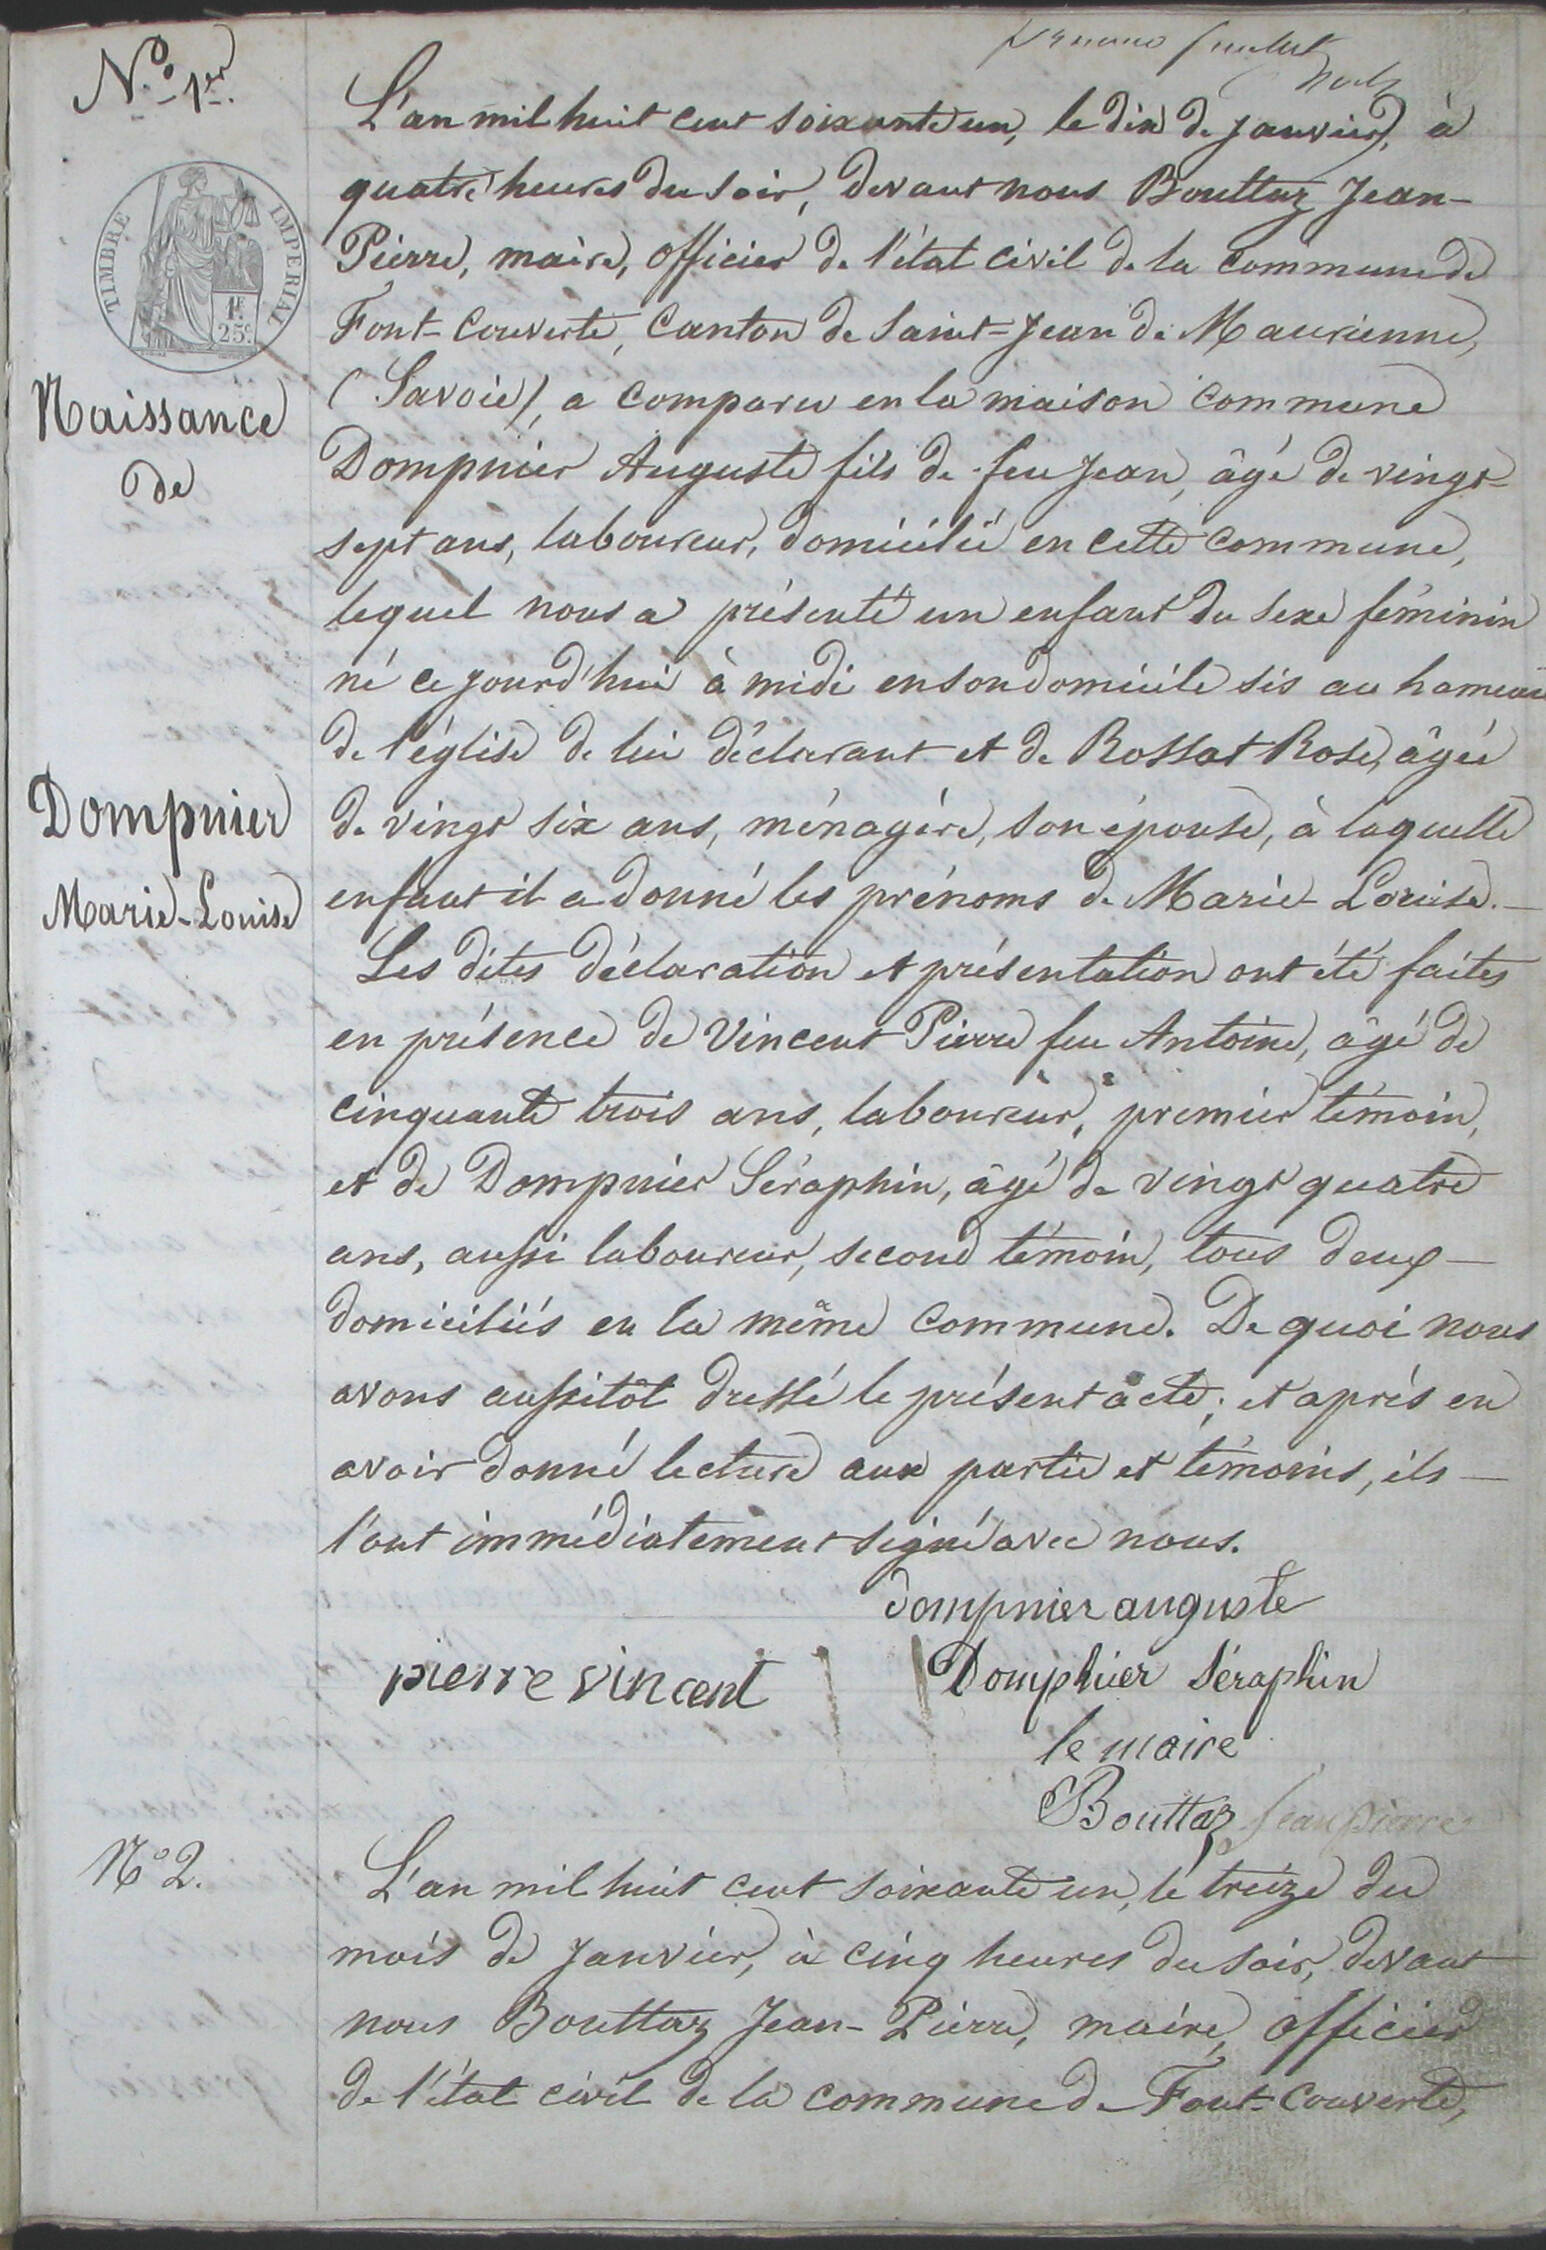 N.o 1er.
L'an mil huit cent soixante un, le dix de janvier, à
quatre heures du soir, devant nous Bouttaz Jean-
Pierre, maire, officier de l'état civil de la commune de
Font-Couverte, Canton de Saint-Jean de Maurienne,
(Savoie), a comparu en la maison commune
Dompnier Auguste fils de feu Jean, âgé de vingt-
sept ans, laboureur, domicilié en cette commune,
lequel nous a présenté un enfant du sexe féminin
né ce jourd'hui à midi en son domicile sis au hameau
de l'église de lui déclarant et de Rossat Rose, âgée
de vingt six ans, ménagère, son épouse, à laquelle
enfant il a donné les prénoms de Marie-Louise.—
Les dites déclaration et présentation ont été faites
en présence de Vincent Pierre feu Antoine, âgé de
cinquante trois ans, laboureur, premier témoin,
et de Dompnier Séraphin, âgé de vingt quatre
ans, aussi laboureur, second témoin, tous deux —
domiciliés en la même commune. De quoi nous
avons aussitôt dressé le présent acte; et après en
avoir donné lecture aux partie et témoins, ils —
l'ont immédiatement signé avec nous.
TIMBRE IMPERIAL
1F.
25c.
Naissance
de
Dompnier
Marie-Louise
dompnier auguste
pierre vincent
Dompnier Séraphin
le maire
Bouttaz Jean pierre
No 2.
L'an mil huit cent soixante un, le treize du
mois de Janvier, à cinq heures du soir, devant
nous Bouttaz Jean-Pierre, maire, officier
de l'état civil de la commune de Font-Couverte,